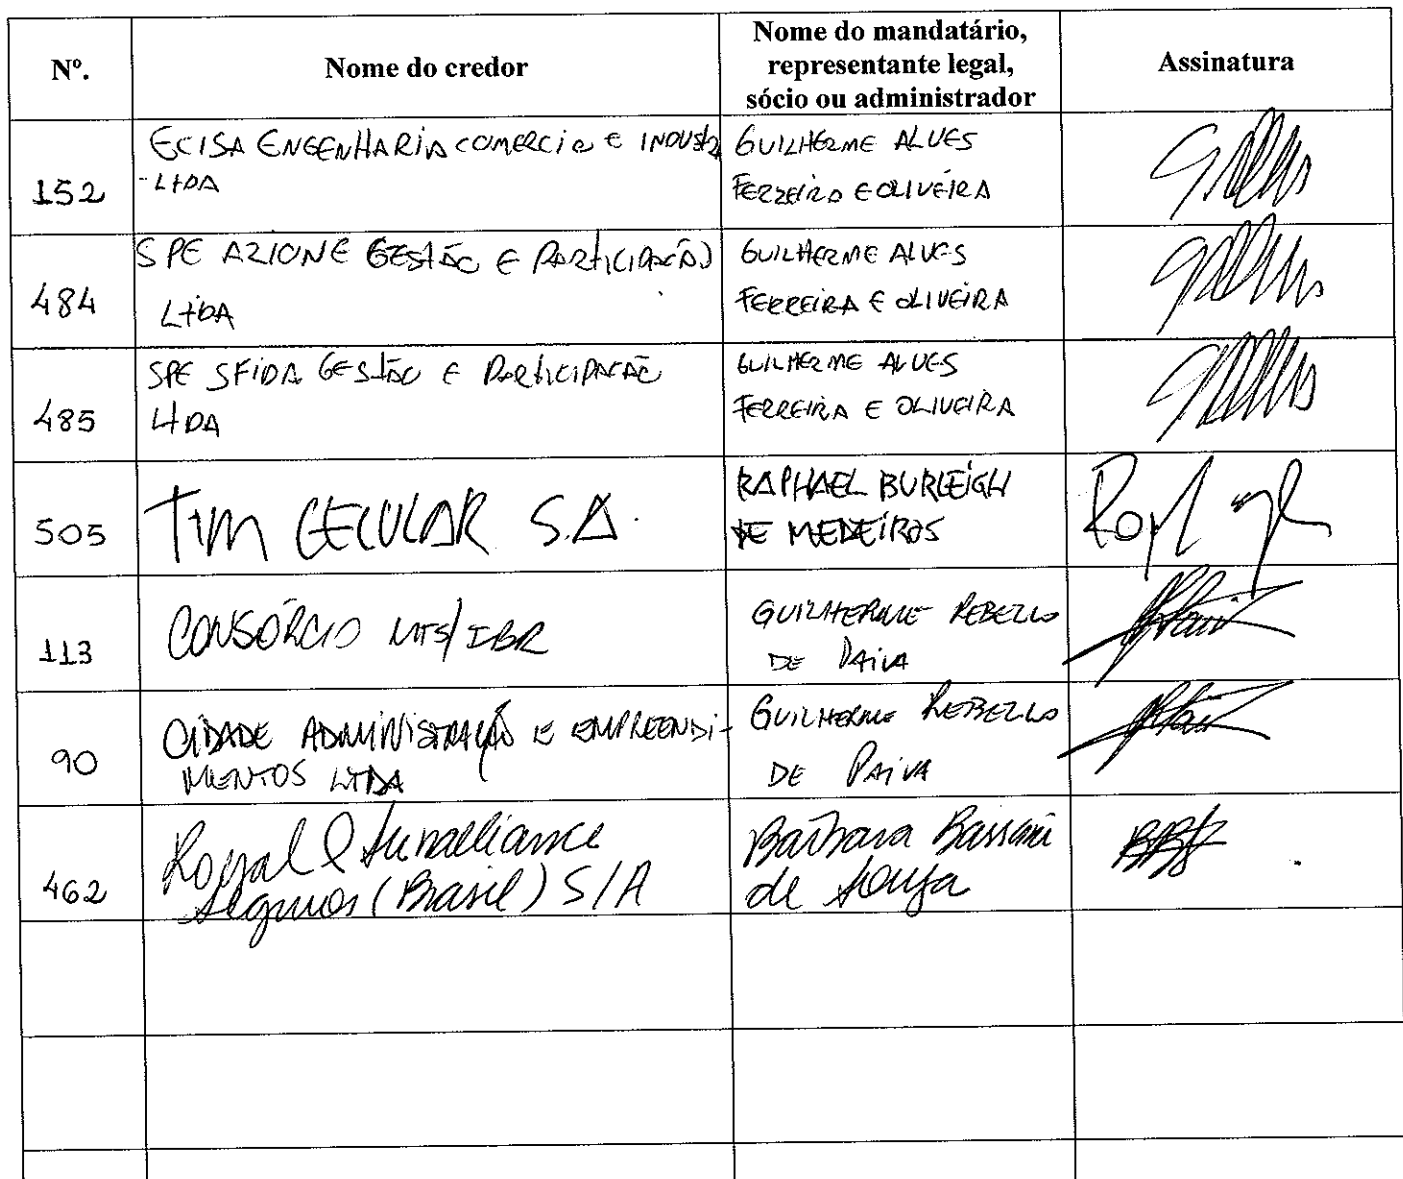 Nº.
Nome do credor
Nome do mandatário,
representante legal,
sócio ou administrador
Assinatura
152
ECISA ENGENHARIA COMERCIO E INDUSTR
LTDA
GUILHERME ALVES
FERREIRA E OLIVEIRA
484
SPE AZIONE GESTÃO E PARTICIPAÇÃO
LTDA
GUILHERME ALVES
FERREIRA E OLIVEIRA
485
SPE SFIDA GESTÃO E PARTICIPAÇÃO
LTDA
GUILHERME ALVES
FERREIRA E OLIVEIRA
505
TIM CELULAR S.A.
RAPHAEL BURLEIGH
DE MEDEIROS
113
CONSÓRCIO MTS/IBR
GUILHERME REBELLO
DE PAIVA
90
CIDADE ADMINISTRAÇÃO E EMPREENDI-
MENTOS LTDA
GUILHERME REBELLO
DE PAIVA
462
Royal & Sunalliance
Seguros (Brasil) S/A
Barbara Bassani
de Souza